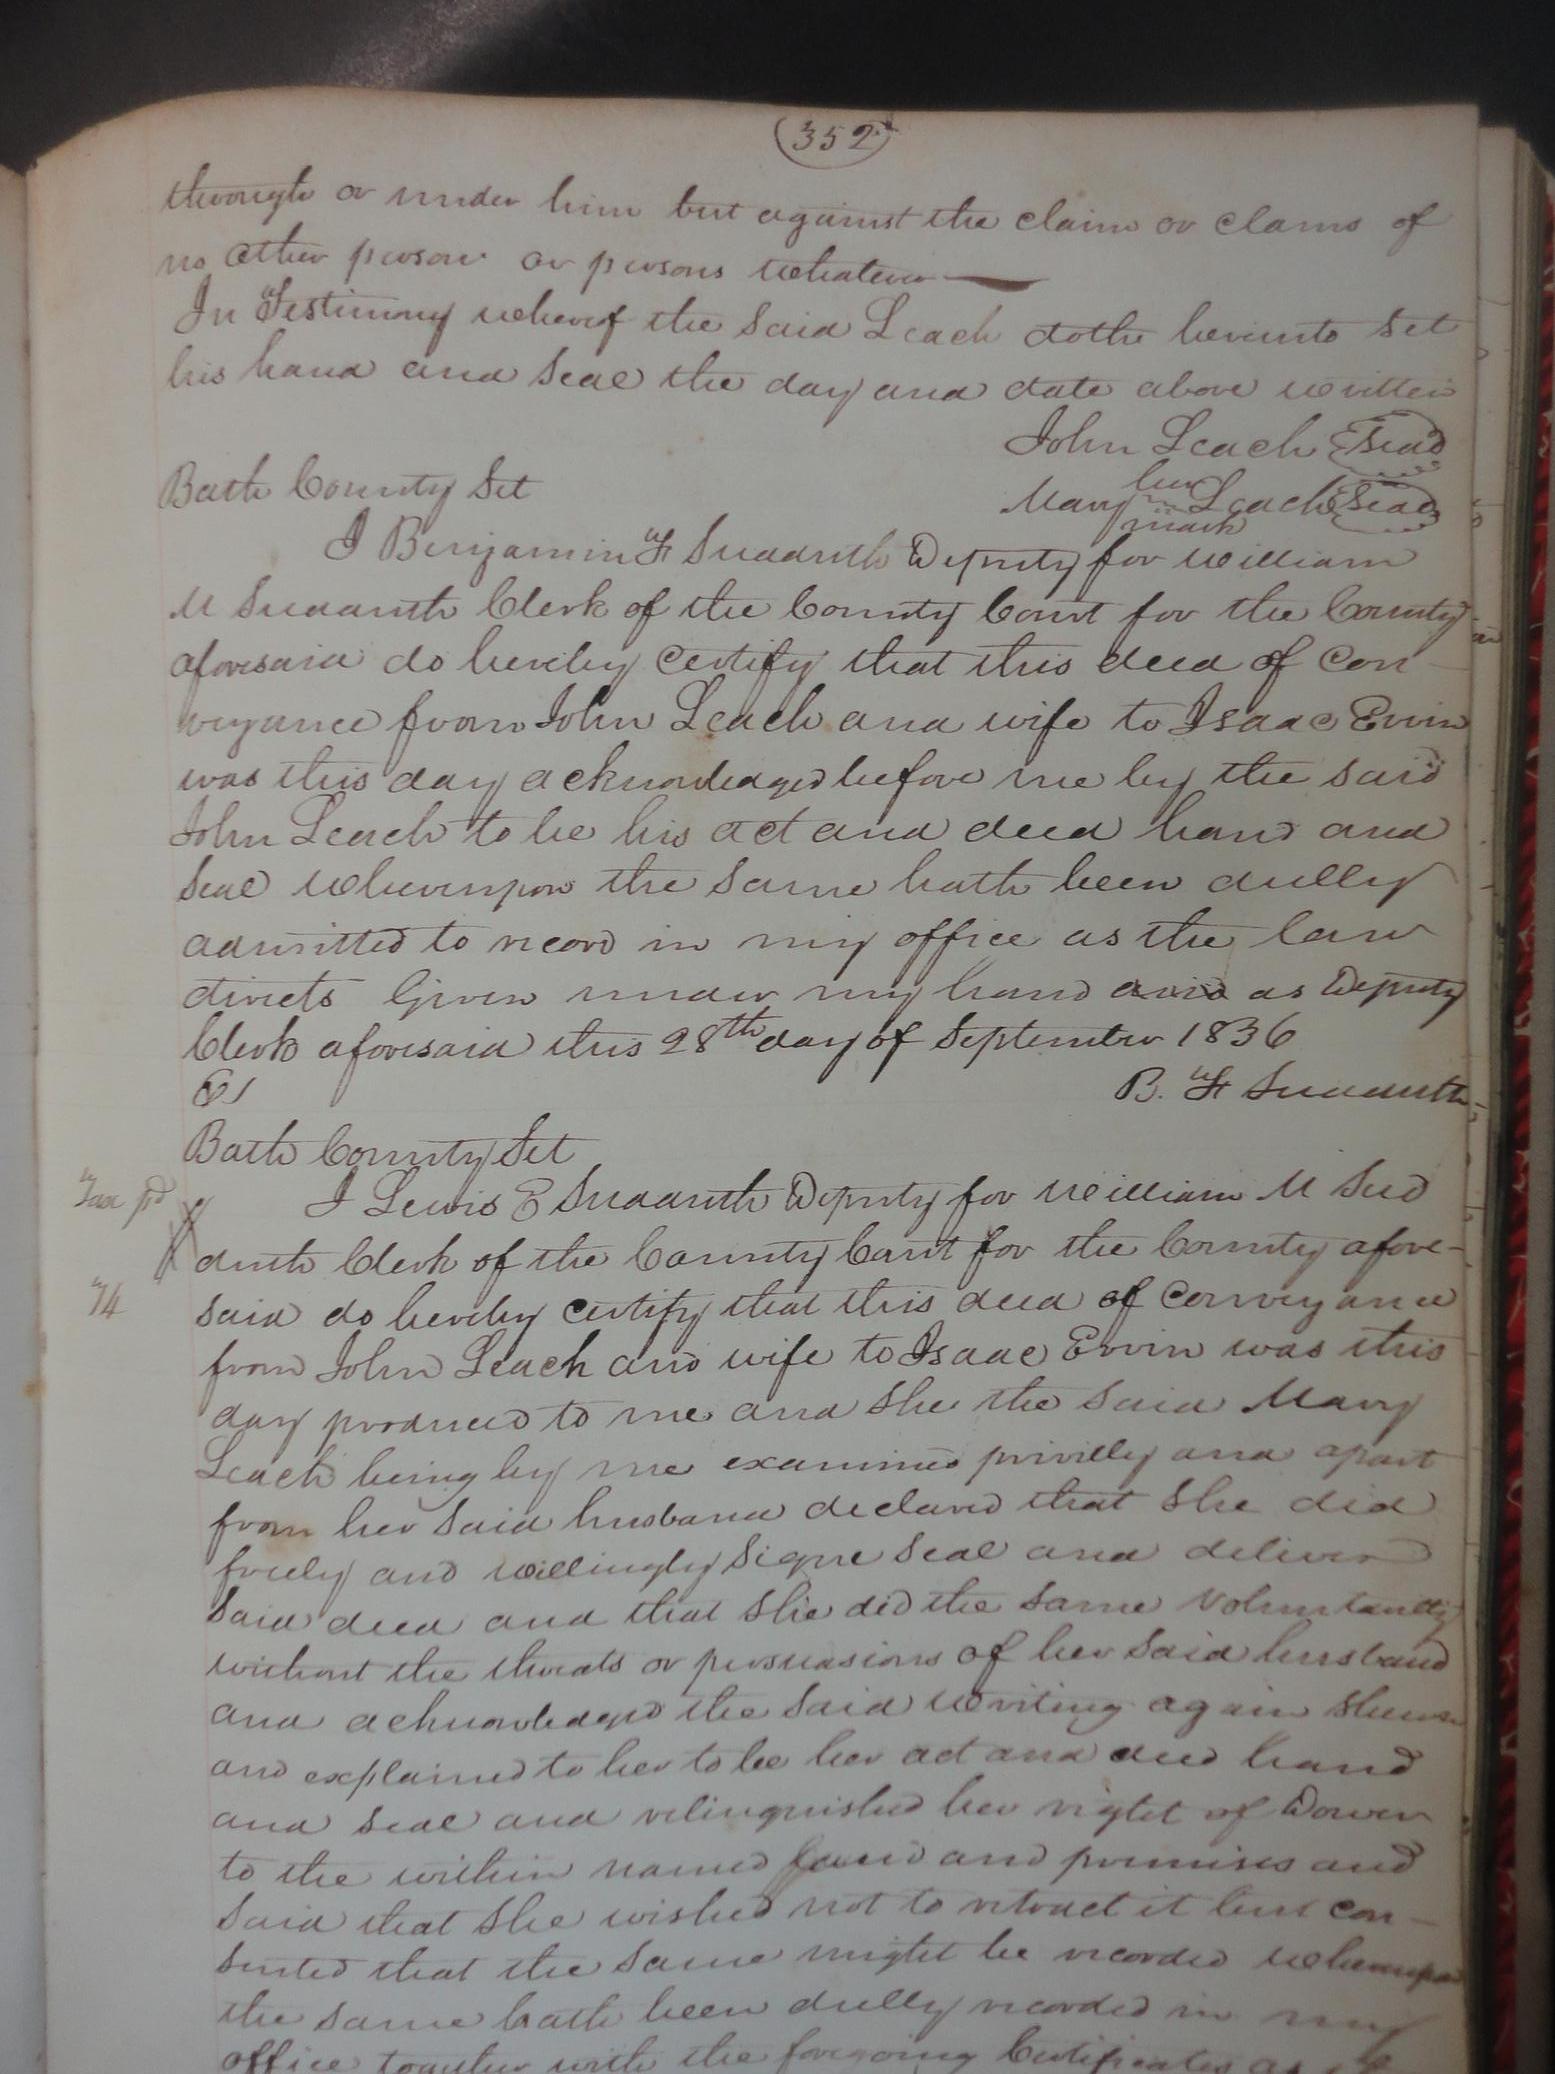 352
through or under him but against the claim or clams of
no other person or persons whatever
In Testimony whereof the said Leach dothe hereunto set
his hand and seal the day and date above written
John Leach Seal
her
Bath County Sct Mary Leach Seal
mark
I Benjamin F Sudduth Deputy for William
M Sudduth Clerk of the County Court for the County
aforesaid do hereby certify that this deed of con-
veyance from John Leach and wife to Isaac Ervin
was this day acknowledged before me by the said
John Leach to be his act and deed hand and
seal whereupon the same hath been dully
admitted to record in my office as the law
directs Given under my hand as Deputy
Clerk aforesaid this 28th day of September 1836
B. F Sudduth
Bath County Sct
Tax pd
I Lewis E Sudduth Deputy for William M Sud
duth Clerk of the County Court for the County afore-
said do hereby certify that this deed of Conveyance
from John Leach and wife to Isaac Ervin was this
day produced to me and she the said Mary
Leach being by me examined privilly and apart
from her said husband declared that she did
freely and willingly signe seal and deliver
said deed and that she did the same Voluntarily
without the threats or persuasions of her said husband
and acknowledged the said writing again shewn
and explained to her to be her act and deed hand
and seal and relinquished her right of Dower
to the within named land and premises and
said that she wished not to retract it but con-
sented that the same might be recorded whereupon
the same hath been dully recorded in my
office together with the foregoing Certificates as